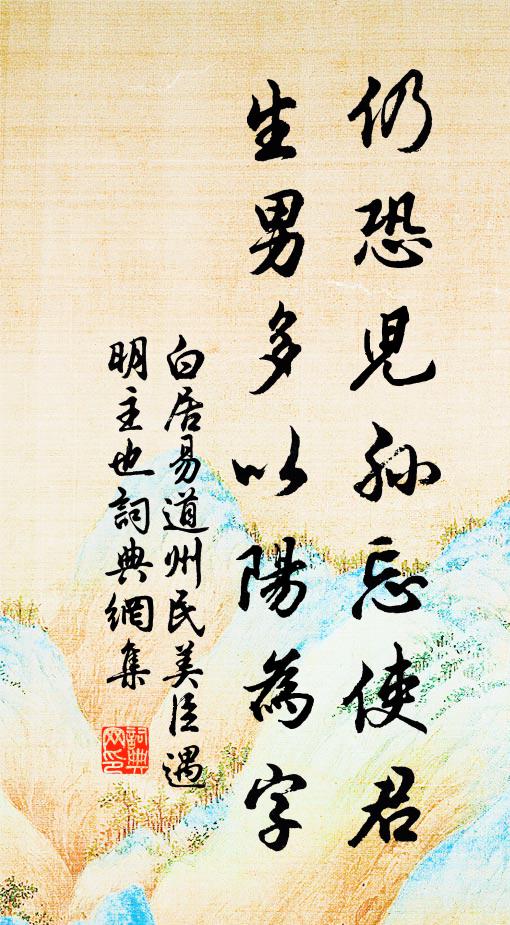 仍恐兒孫忘使君
生男多以陽為字
白居易道州民美臣遇
明主也詞典網集